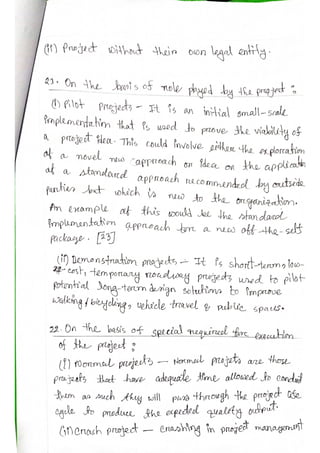 (ii) Project without their own legal entity.
21. On the basis of role played by the project :
(i) Pilot Projects - It is an initial small-scale
implementation that is used to prove the viability of
a project idea. This could involve either the exploration
of a novel new approach or idea or the application
of a standard approach recommended by outside
parties but which is new to the organization.
An example of this would be the standard
implementation approach for a new off-the-self
package. [23]
(ii) Demonstration projects - It is short-term, low-
cost, temporary roadway projects used to pilot
potential long-term design solutions to improve
walking / bicycling, vehicle travel & public spaces.
22. On the basis of special required for execution
of the project :
(i) Normal projects - Normal projects are those
projects that have adequate time allowed to conduct
them as such they will pass through the project life
cycle to produce the expected quality output.
(ii) Crash project - Crashing in project management